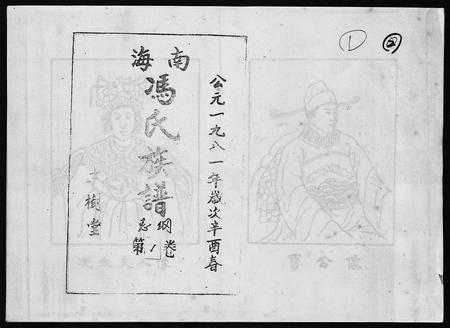 ① ②
公元一九八一年歲次辛酉春
南海
馮氏族譜
总纲
第1卷
大樹堂